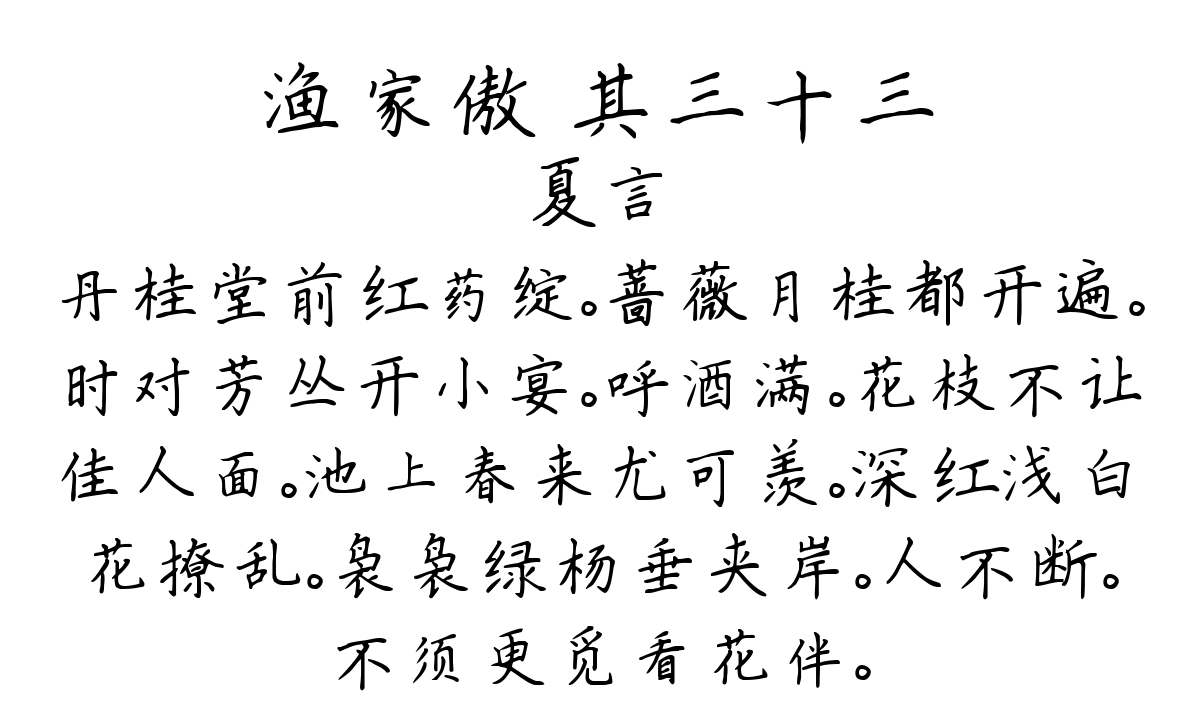 渔家傲 其三十三
夏言
丹桂堂前红药绽。蔷薇月桂都开遍。
时对芳丛开小宴。呼酒满。花枝不让
佳人面。池上春来尤可羡。深红浅白
花撩乱。袅袅绿杨垂夹岸。人不断。
不须更觅看花伴。